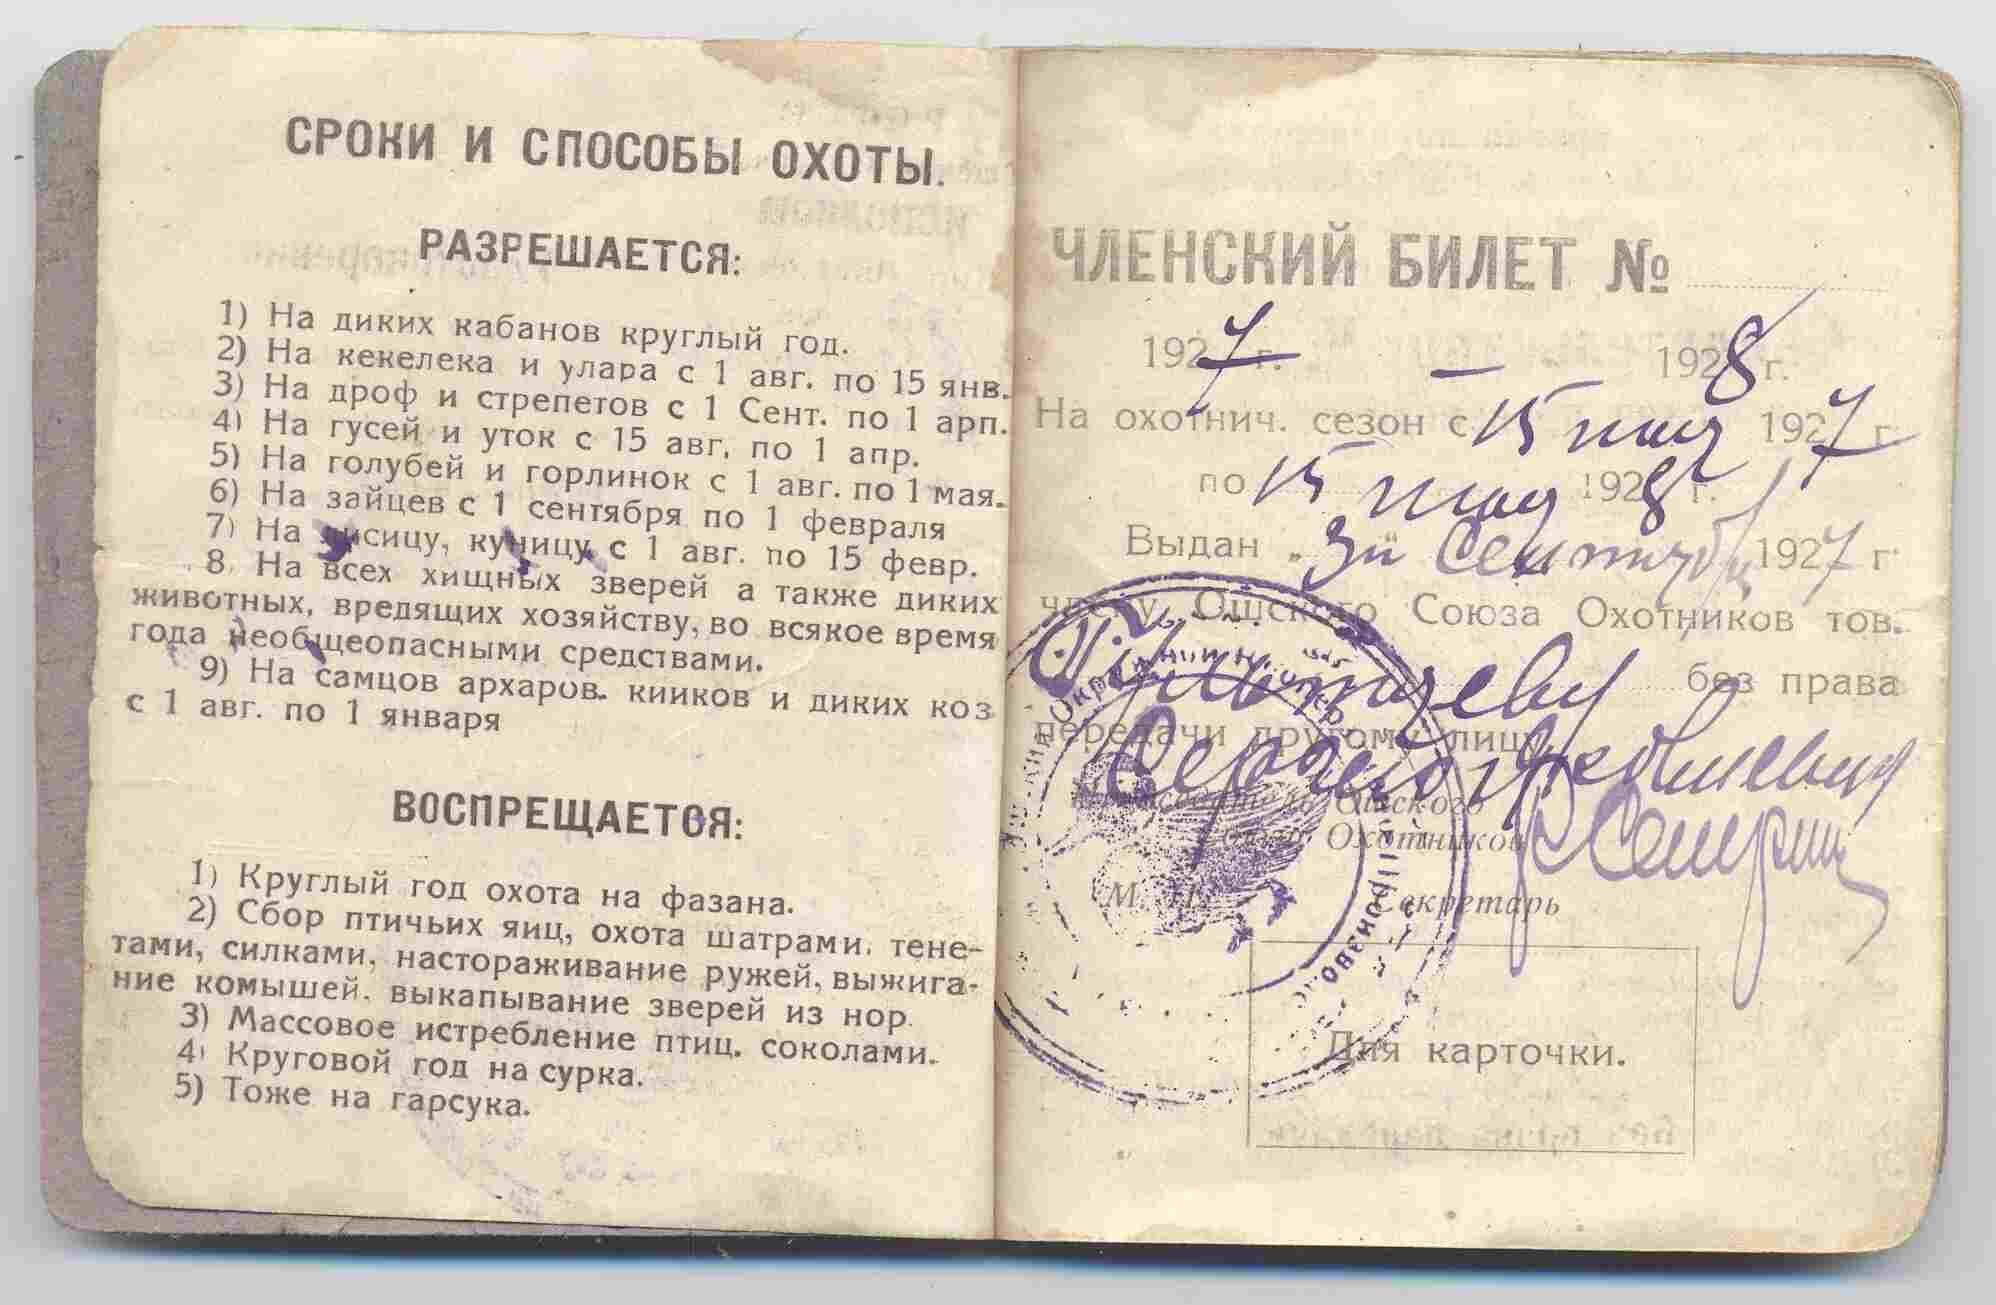 СРОКИ И СПОСОБЫ ОХОТЫ.
РАЗРЕШАЕТСЯ:
1) На диких кабанов круглый год.
2) На кекелека и улара с 1 авг. по 15 янв.
3) На дроф и стрепетов с 1 Сент. по 1 арп.
4) На гусей и уток с 15 авг. по 1 апр.
5) На голубей и горлинок с 1 авг. по 1 мая.
6) На зайцев с 1 сентября по 1 февраля
7) На лисицу, куницу с 1 авг. по 15 февр.
8. На всех хищных зверей а также диких
животных, вредящих хозяйству, во всякое время
года необщеопасными средствами.
9) На самцов архаров. кииков и диких коз
с 1 авг. по 1 января
ВОСПРЕЩАЕТСЯ:
1) Круглый год охота на фазана.
2) Сбор птичьих яиц, охота шатрами, тене-
тами, силками, настораживание ружей, выжига-
ние комышей. выкапывание зверей из нор.
3) Массовое истребление птиц. соколами.
4) Круговой год на сурка.
5) Тоже на гарсука.
ЧЛЕНСКИЙ БИЛЕТ №
1927 г. — 1928 г.
На охотнич. сезон с 15 мая 1927 г.
по 15 мая 1928 г.
Выдан „3" Сентября 1927 г
члену Ошского Союза Охотников тов.
без права
передачи другому лицу
Ошского
Охотников
М. П. Секретарь
Для карточки.